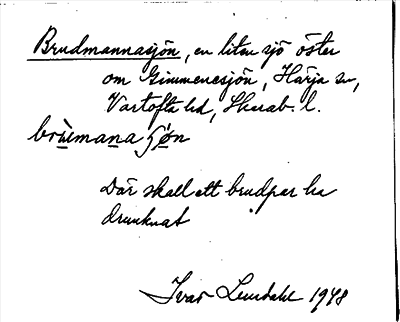 Brudmannasjön, en liten sjö öster
om Gimmenesjön, Härja sn,
Vartofta hd, Skarab. l.
brùmana ʃön
Där skall ett brudpar ha
drunknat
Ivar Lundahl 1948